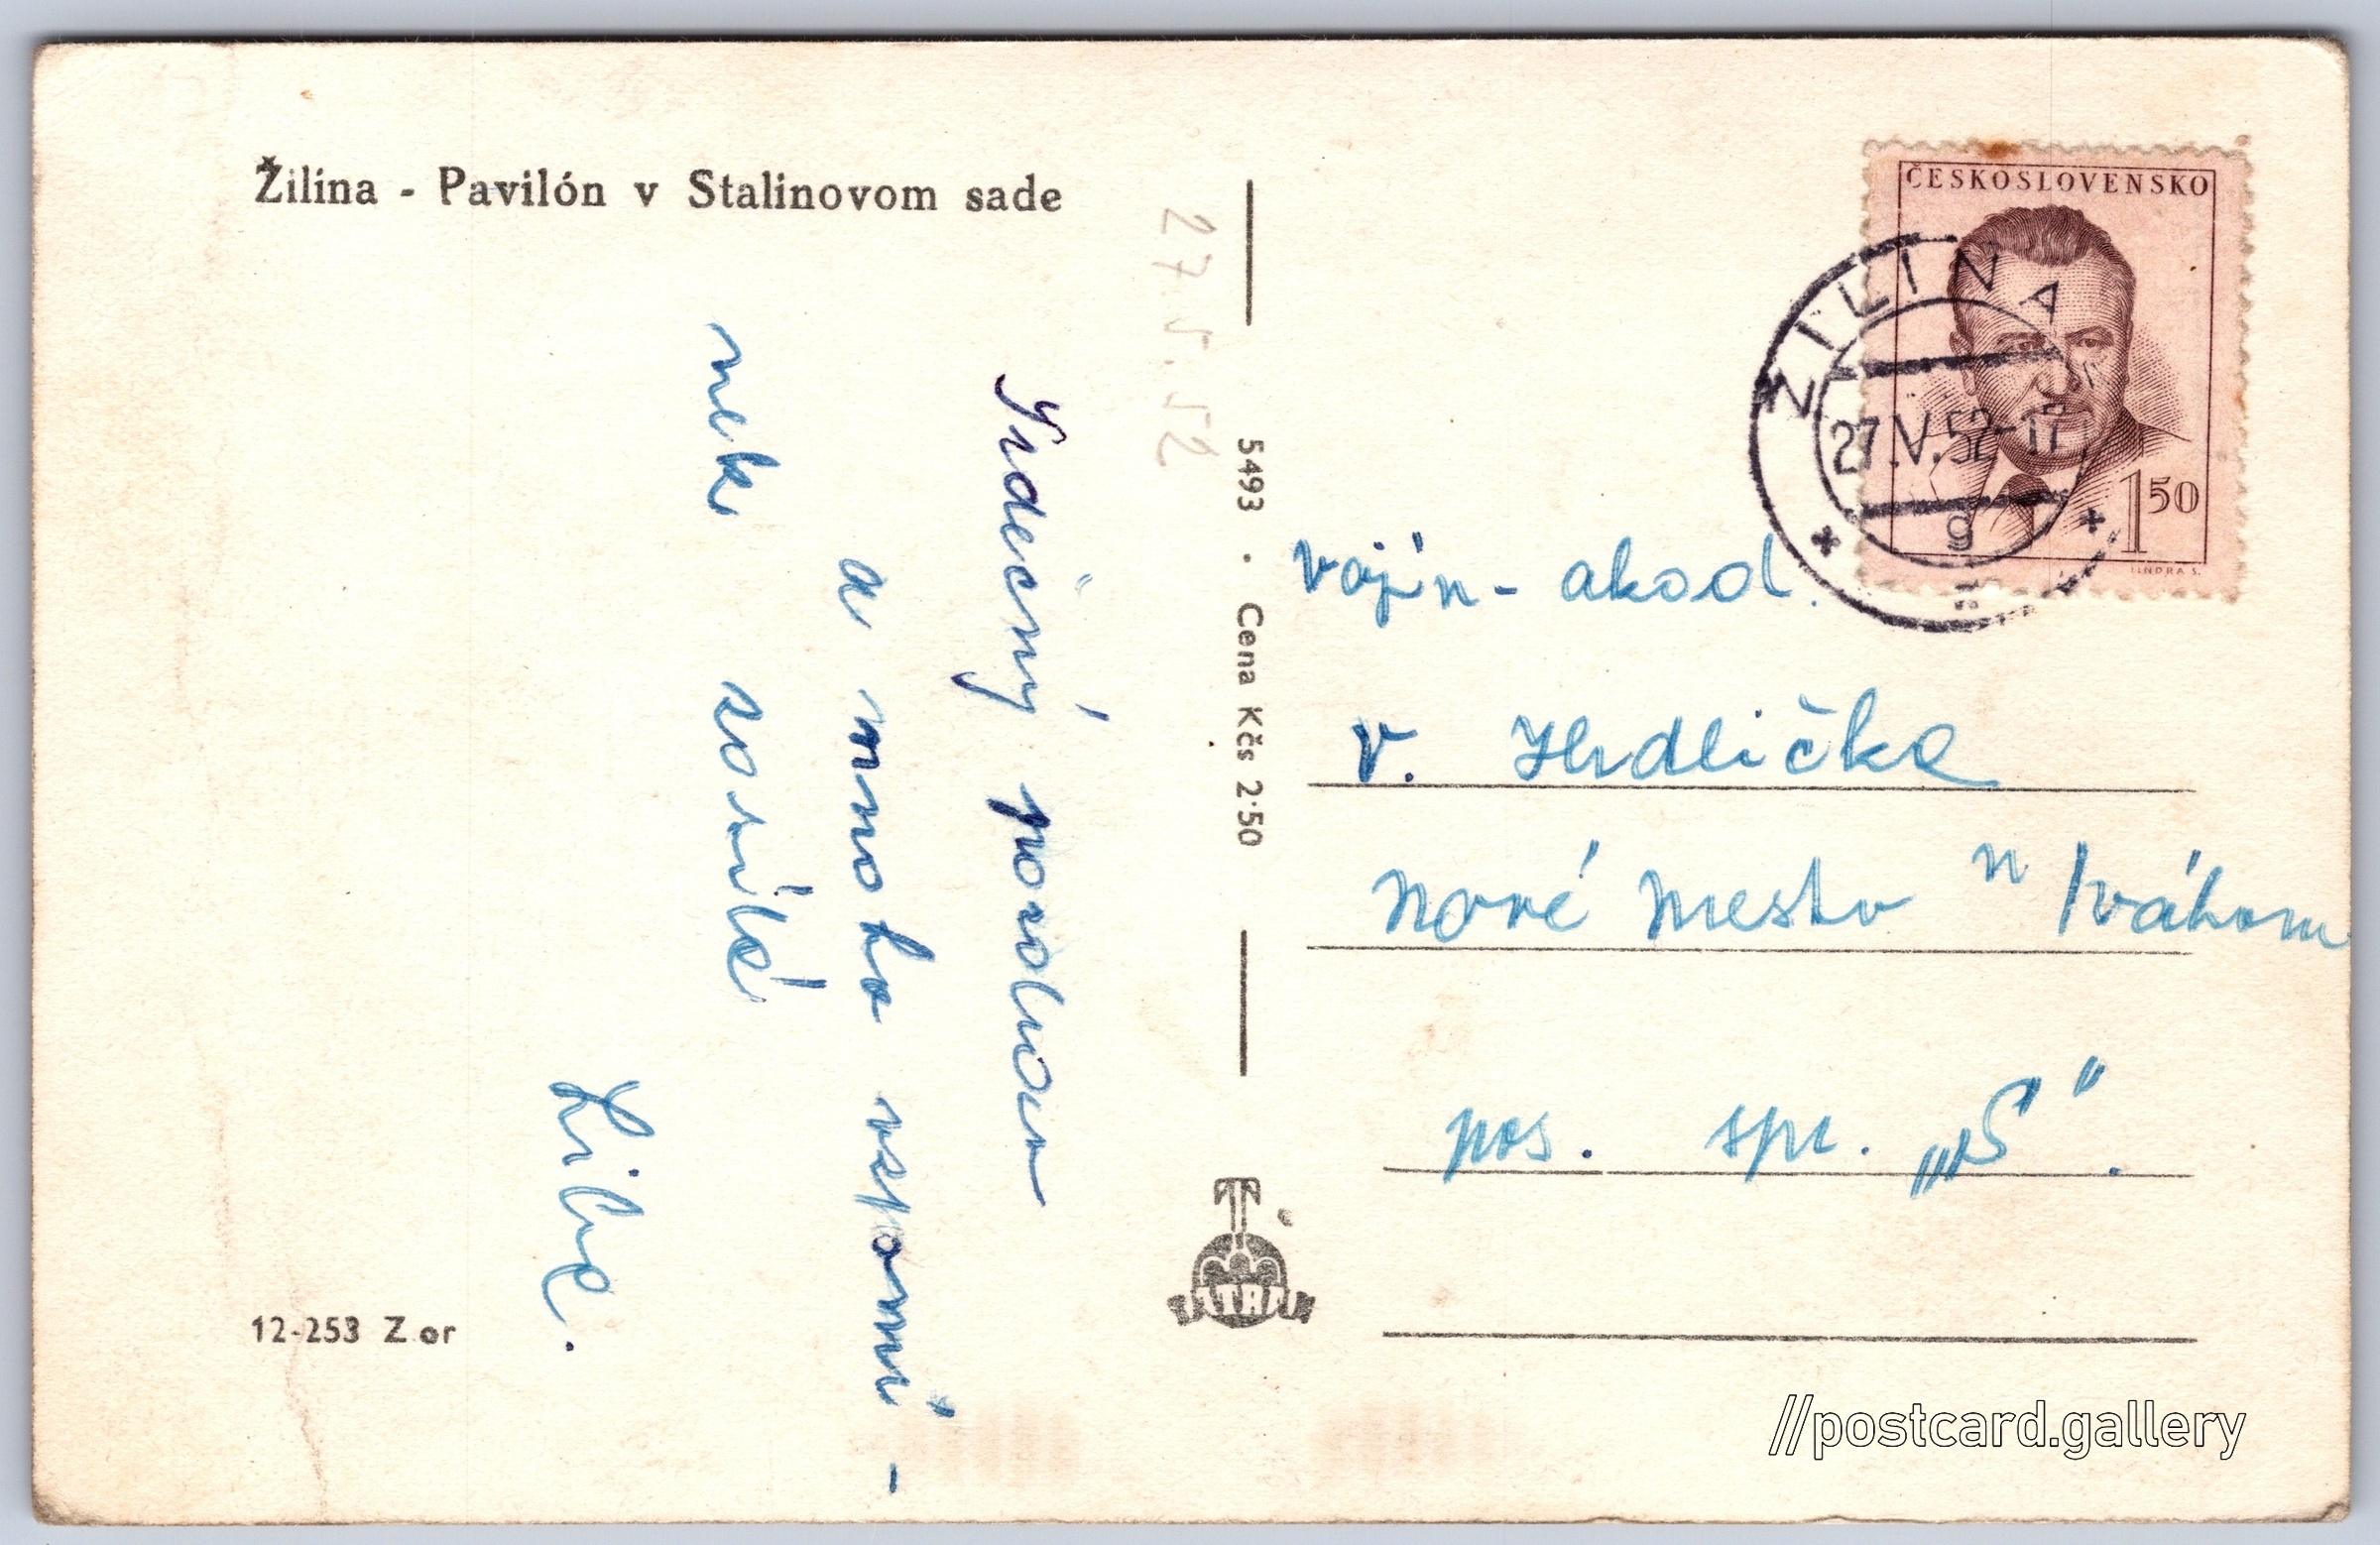 Žilina - Pavilón v Stalinovom sade
27.V.52
Srdečný pozdrav
a mnoho vspomi-
nek zasílá
Liba.
12-253 Zor
5493 · Cena Kčs 2·50
TATRAN
ČESKOSLOVENSKO
1 50
JINDRA S.
ŽILINA
27.V.52-17
g
vojín - akad.
V. Hrdlička
Nové Mesto n/Váhom
pos. spr. „S".
//postcard.gallery